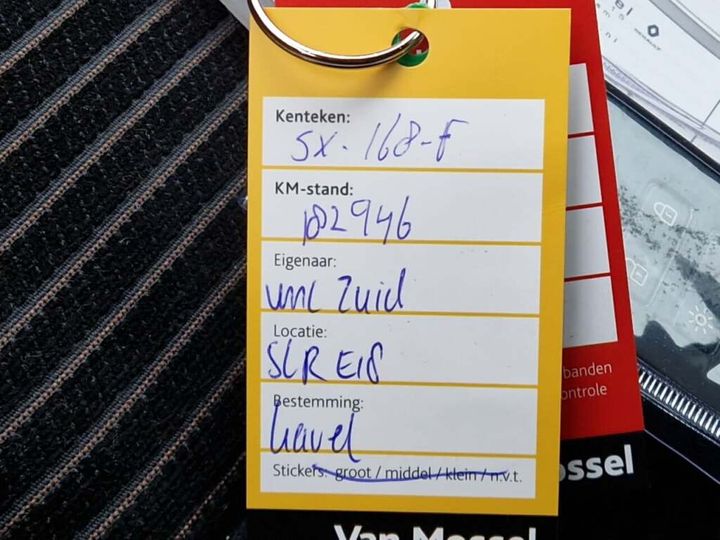 Kenteken:
SX-168-F
KM-stand:
182946
Eigenaar:
VML Zuid
Locatie:
SLR E18
Bestemming:
havel
Stickers: groot / middel / klein / n.v.t.
Van Mossel
banden
ontrole
ossel